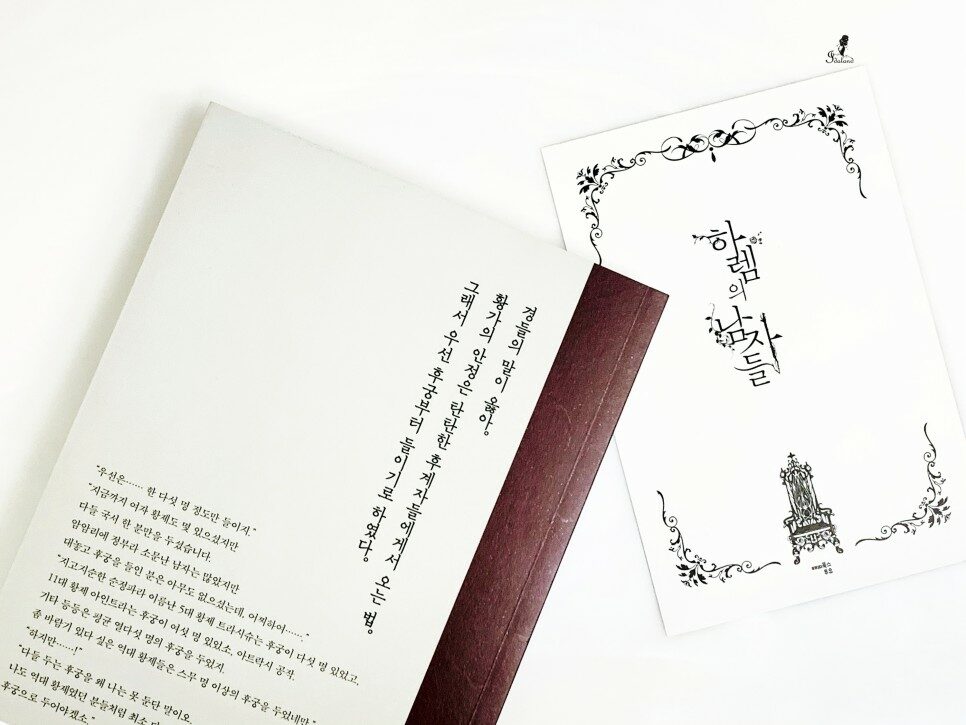 Idaland
하렘의
남자들
경들의 말이 옳아.
황가의 안정은 탄탄한 후계자들에게서 오는 법.
그래서 우선 후궁부터 들이기로 하였다.
"우선은…… 한 다섯 명 정도만 들이지."
"지금까지 여자 황제도 몇 있으셨지만
다들 국서 한 분만을 두셨습니다.
암암리에 정부라 소문난 남자는 많았지만
대놓고 후궁을 들인 분은 아무도 없으셨는데, 어찌하여……."
"지고지순한 순정파라 이름난 5대 황제 트라시슈는 후궁이 다섯 명 있었고,
11대 황제 아인트라는 후궁이 여섯 명 있었소, 아트락시 공작.
기타 등등은 평균 열다섯 명의 후궁을 두었지.
좀 바람기 있다 싶은 역대 황제들은 스무 명 이상의 후궁을 두었네만."
"하지만……!"
"다들 두는 후궁을 왜 나는 못 둔단 말이오.
나도 역대 황제였던 분들처럼 최소
후궁으로 두어야겠소."